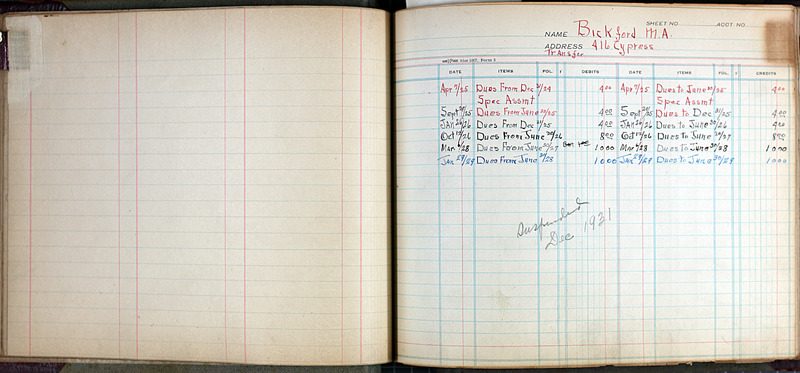 SHEET NO. ACCT NO.
NAME Bickford M.A.
ADDRESS 416 Cypress
Transfer
DATE ITEMS FOL. DEBITS DATE ITEMS FOL. CREDITS
Apr 7/25 Dues From Dec 31/24 4 00 Apr 7/25 Dues to June 30/25 4 00
Spec Assmt Spec Assmt
Sept 25 Dues From June 30/25 4 00 Sept 25 Dues to Dec 31/25 4 00
JAN 26/26 Dues From Dec 31/25 4 00 JAN 26/26 Dues to June 30/26 4 00
Oct 19/26 Dues From June 30/26 8 00 Oct 19/26 Dues to June 30/27 8 00
Mar 6/28 Dues From June 30/27 10 00 Mar 6/28 Dues to June 30/28 10 00
JAN 29/29 Dues From June 30/28 10 00 JAN 29/29 Dues to June 30/29 10 00
Suspended
Dec 1931